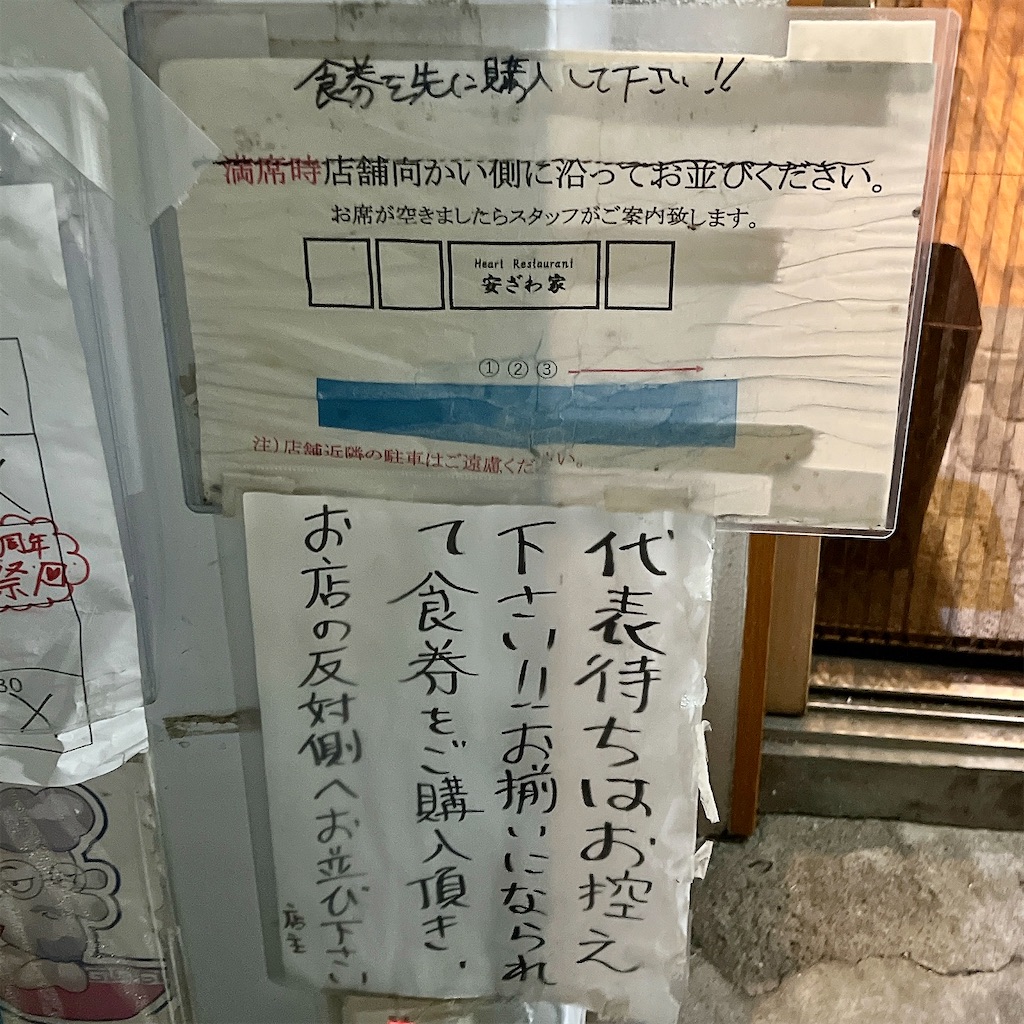 食券を先に購入して下さい!!
満席時店舗向かい側に沿ってお並びください。
お席が空きましたらスタッフがご案内致します。
Heart Restaurant
安ざわ家
①②③
注)店舗近隣の駐車はご遠慮ください。
代表待ちはお控え
下さい!!お揃いになられ
て食券をご購入頂き、
お店の反対側へお並び下さい
店主
周年
祭
30